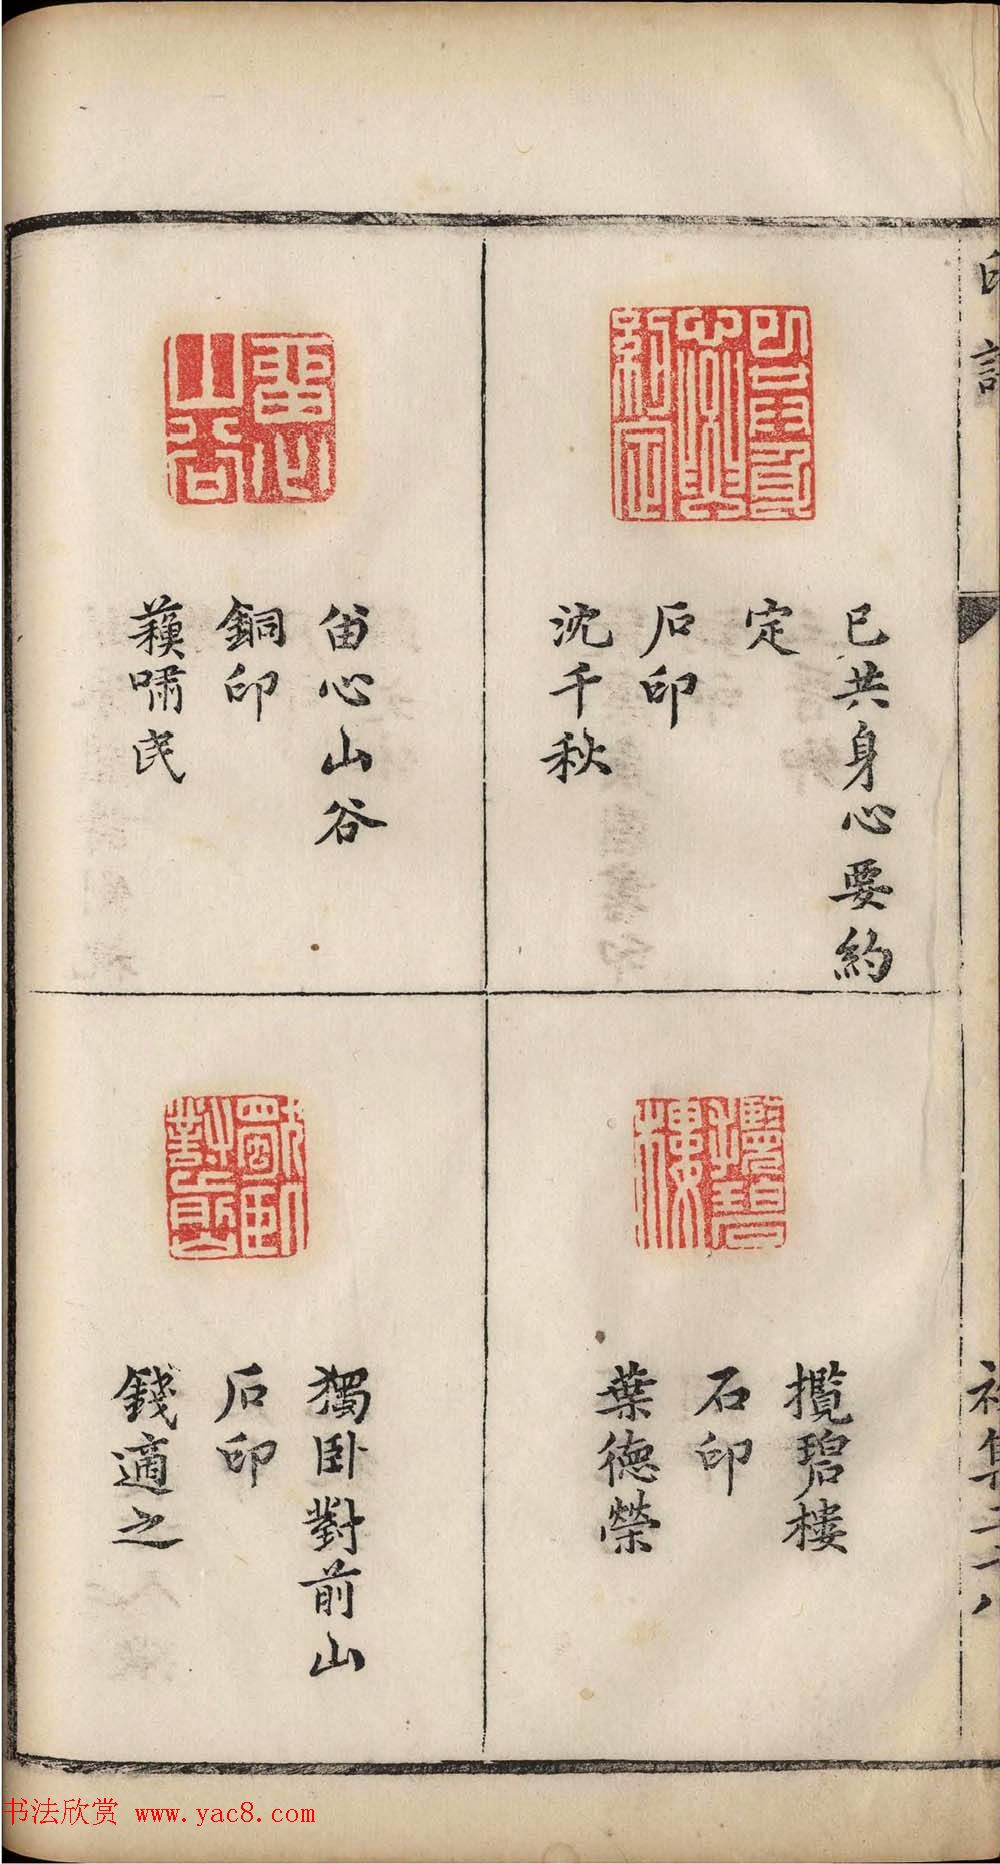 印
已共身心要約
定
石印
沈千秋
畱心山谷
銅印
蘓嘯民
攬碧樓
石印
葉德榮
獨臥對前山
石印
錢適之
书法欣赏 www.yac8.com